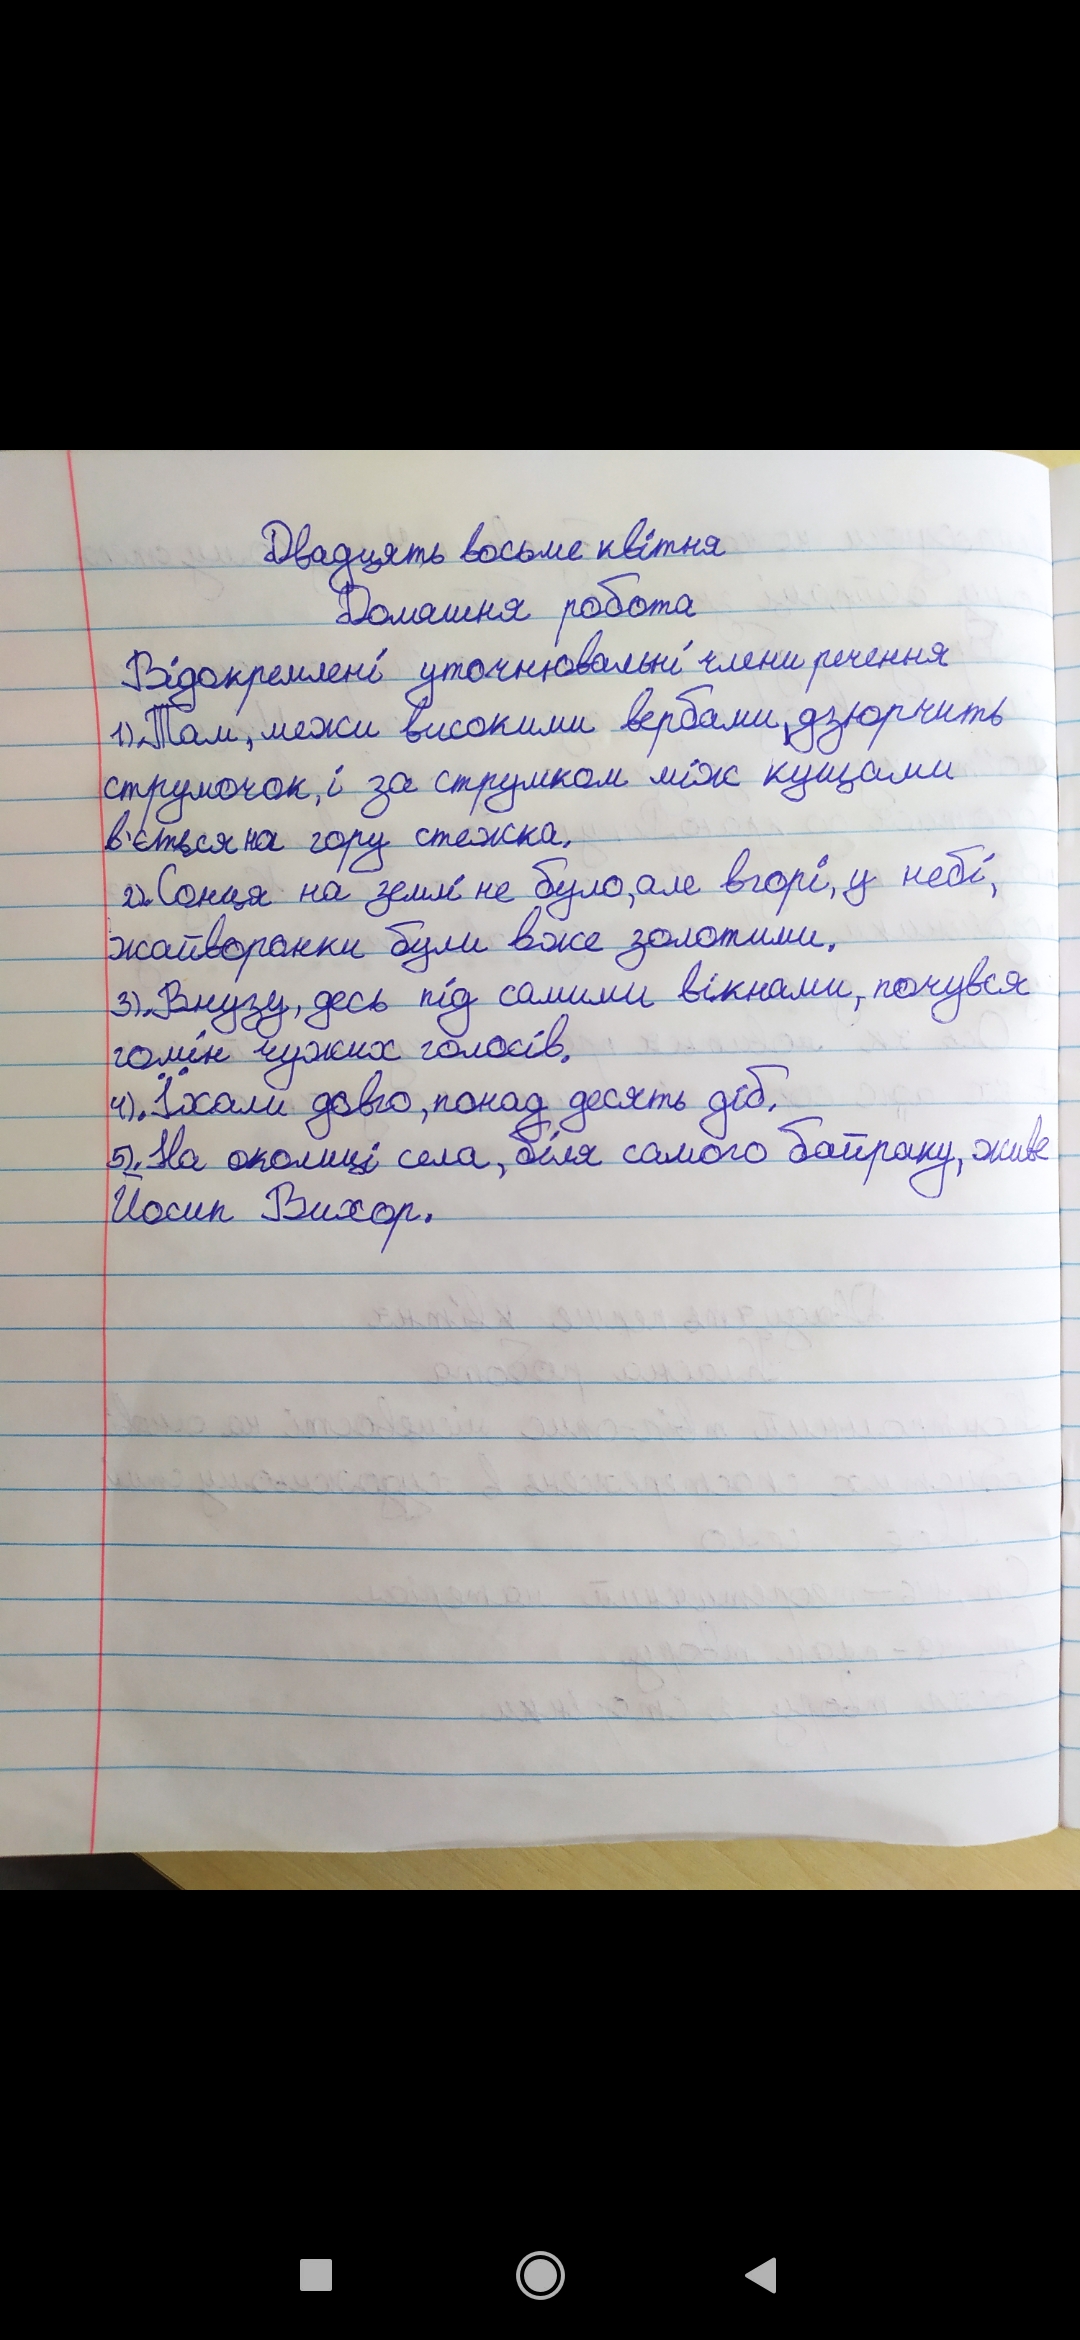 Двадцять восьме квітня
Домашня робота
Відокремлені уточнювальні члени речення
1). Там, межи високими вербами, дзюрчить
струмочок, і за струмком між кущами
в'ється на гору стежка.
2). Сонця на землі не було, але вгорі, у небі,
жайворонки були вже золотими.
3). Внизу, десь під самими вікнами, почувся
гомін чужих голосів.
4). Їхали довго, понад десять діб.
5). На околиці села, біля самого байраку, живе
Йосип Вихор.